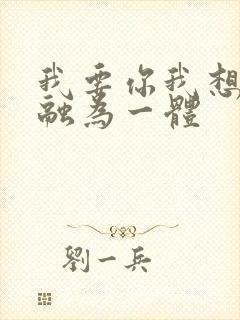 我要你我想
融為一體
劉一兵